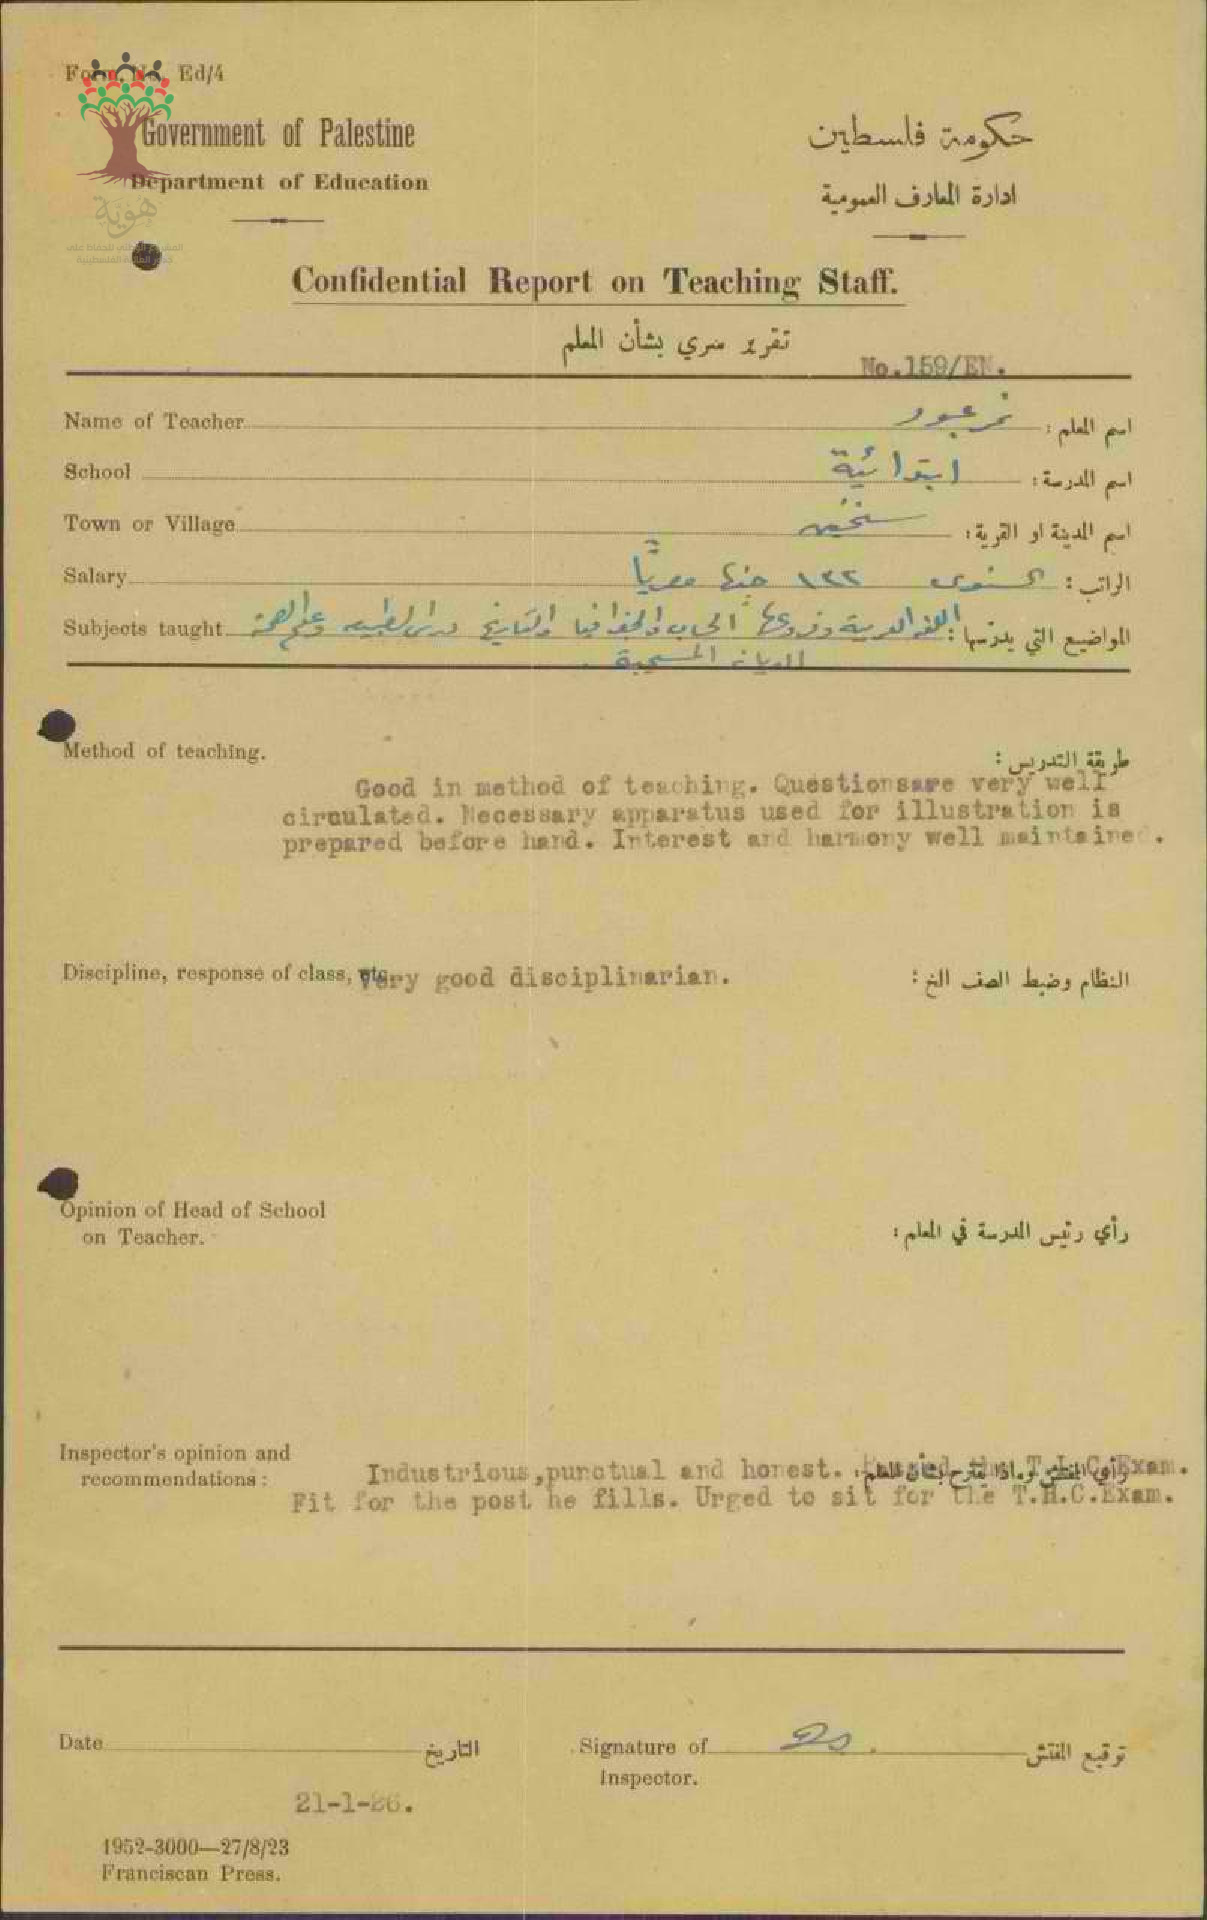 Form No. Ed/4
Government of Palestine
حكومة فلسطين
Department of Education
ادارة المعارف العمومية
هوية
Confidential Report on Teaching Staff.
تقرير سري بشأن المعلم
No.159/EN.
Name of Teacher نمر عبود اسم المعلم :
School ابتدائية اسم المدرسة :
Town or Village سخنين اسم المدينة او القرية :
Salary السنوى ١٢٢ جنيها مصريًا الراتب :
Subjects taught اللغة العربية وفروعها الحساب والجغرافيا والتاريخ دروس الطبيعه وعلم الصحة المواضيع التي يدرسها :
الديانة المسيحية .
Method of teaching.
طريقة التدريس :
Good in method of teaching. Questionsare very well
circulated. Necessary apparatus used for illustration is
prepared before hand. Interest and harmony well maintained.
Discipline, response of class, etc. Very good disciplinarian. النظام وضبط الصف الخ :
Opinion of Head of School
on Teacher.
رأي رئيس المدرسة في المعلم :
Inspector's opinion and
recommendations :
رأي المفتش وماذا يقترح بشأن المعلم :
Industrious,punctual and honest. Passed the T.L.C.Exam.
Fit for the post he fills. Urged to sit for the T.H.C.Exam.
Date التاريخ
Signature of توقيع المفتش
Inspector.
21-1-26.
1952-3000—27/8/23
Franciscan Press.